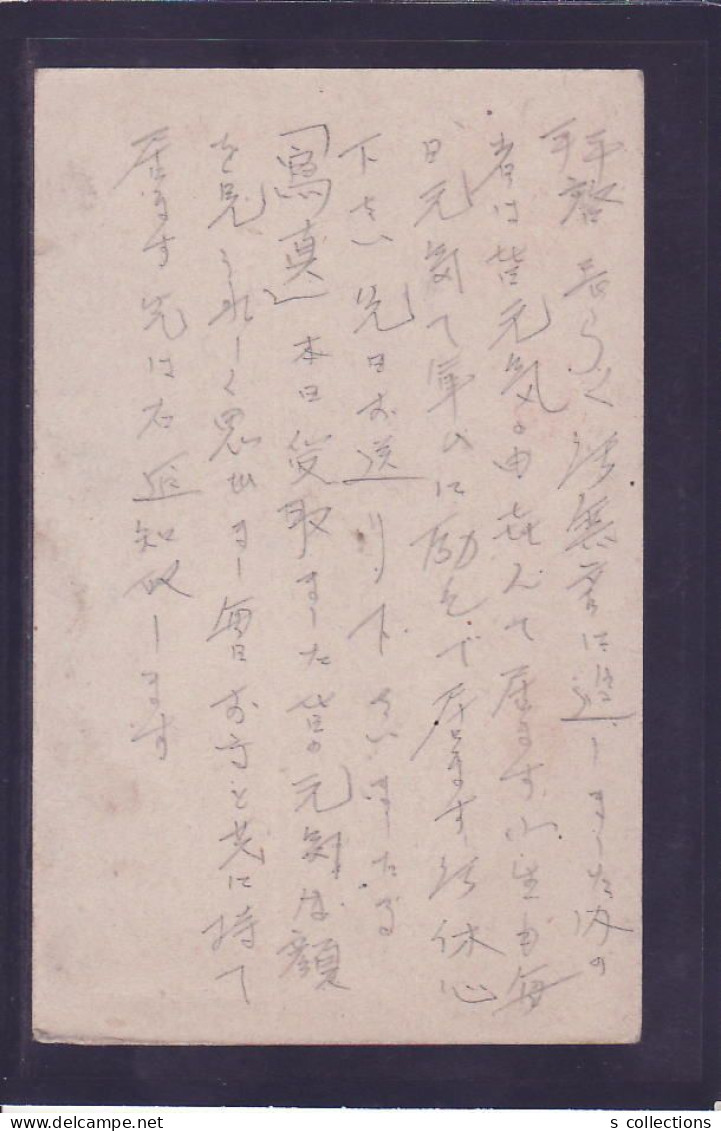 拝啓 長らく御無音に過しました内の
者は皆元気の由喜んで居ます小生も毎
日元気で軍ムに励んで居ます御休心
下さい先日お送り下さいました
「寫真」本日受取ました皆の元気な顔
を見うれしく思ひます毎日お守と共に持て
居ます先は右返知致します
s collections